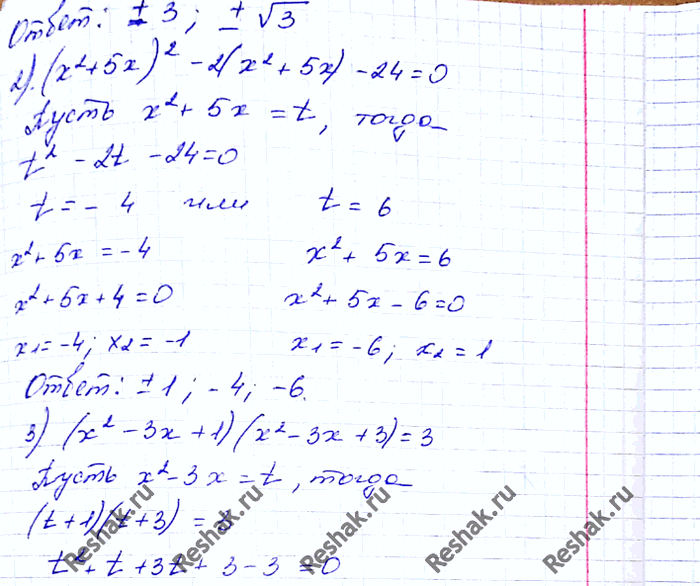 Ответ: ± 3; ± √3
2). (x²+5x)² - 2(x²+5x) - 24=0
Пусть x²+ 5x = t, тогда
t² - 2t - 24=0
t = - 4 или t = 6
x²+ 5x = -4 x²+ 5x = 6
x²+5x+4=0 x²+5x-6=0
x₁=-4; x₂= -1 x₁=-6; x₂=1
Ответ: ±1; -4; -6.
3) (x²-3x+1)(x²-3x+3)=3
Пусть x²-3x=t, тогда
(t+1)(t+3) = 3
t²+ t +3t+ 3-3 =0
Reshak.ru Reshak.ru Reshak.ru Reshak.ru Reshak.ru